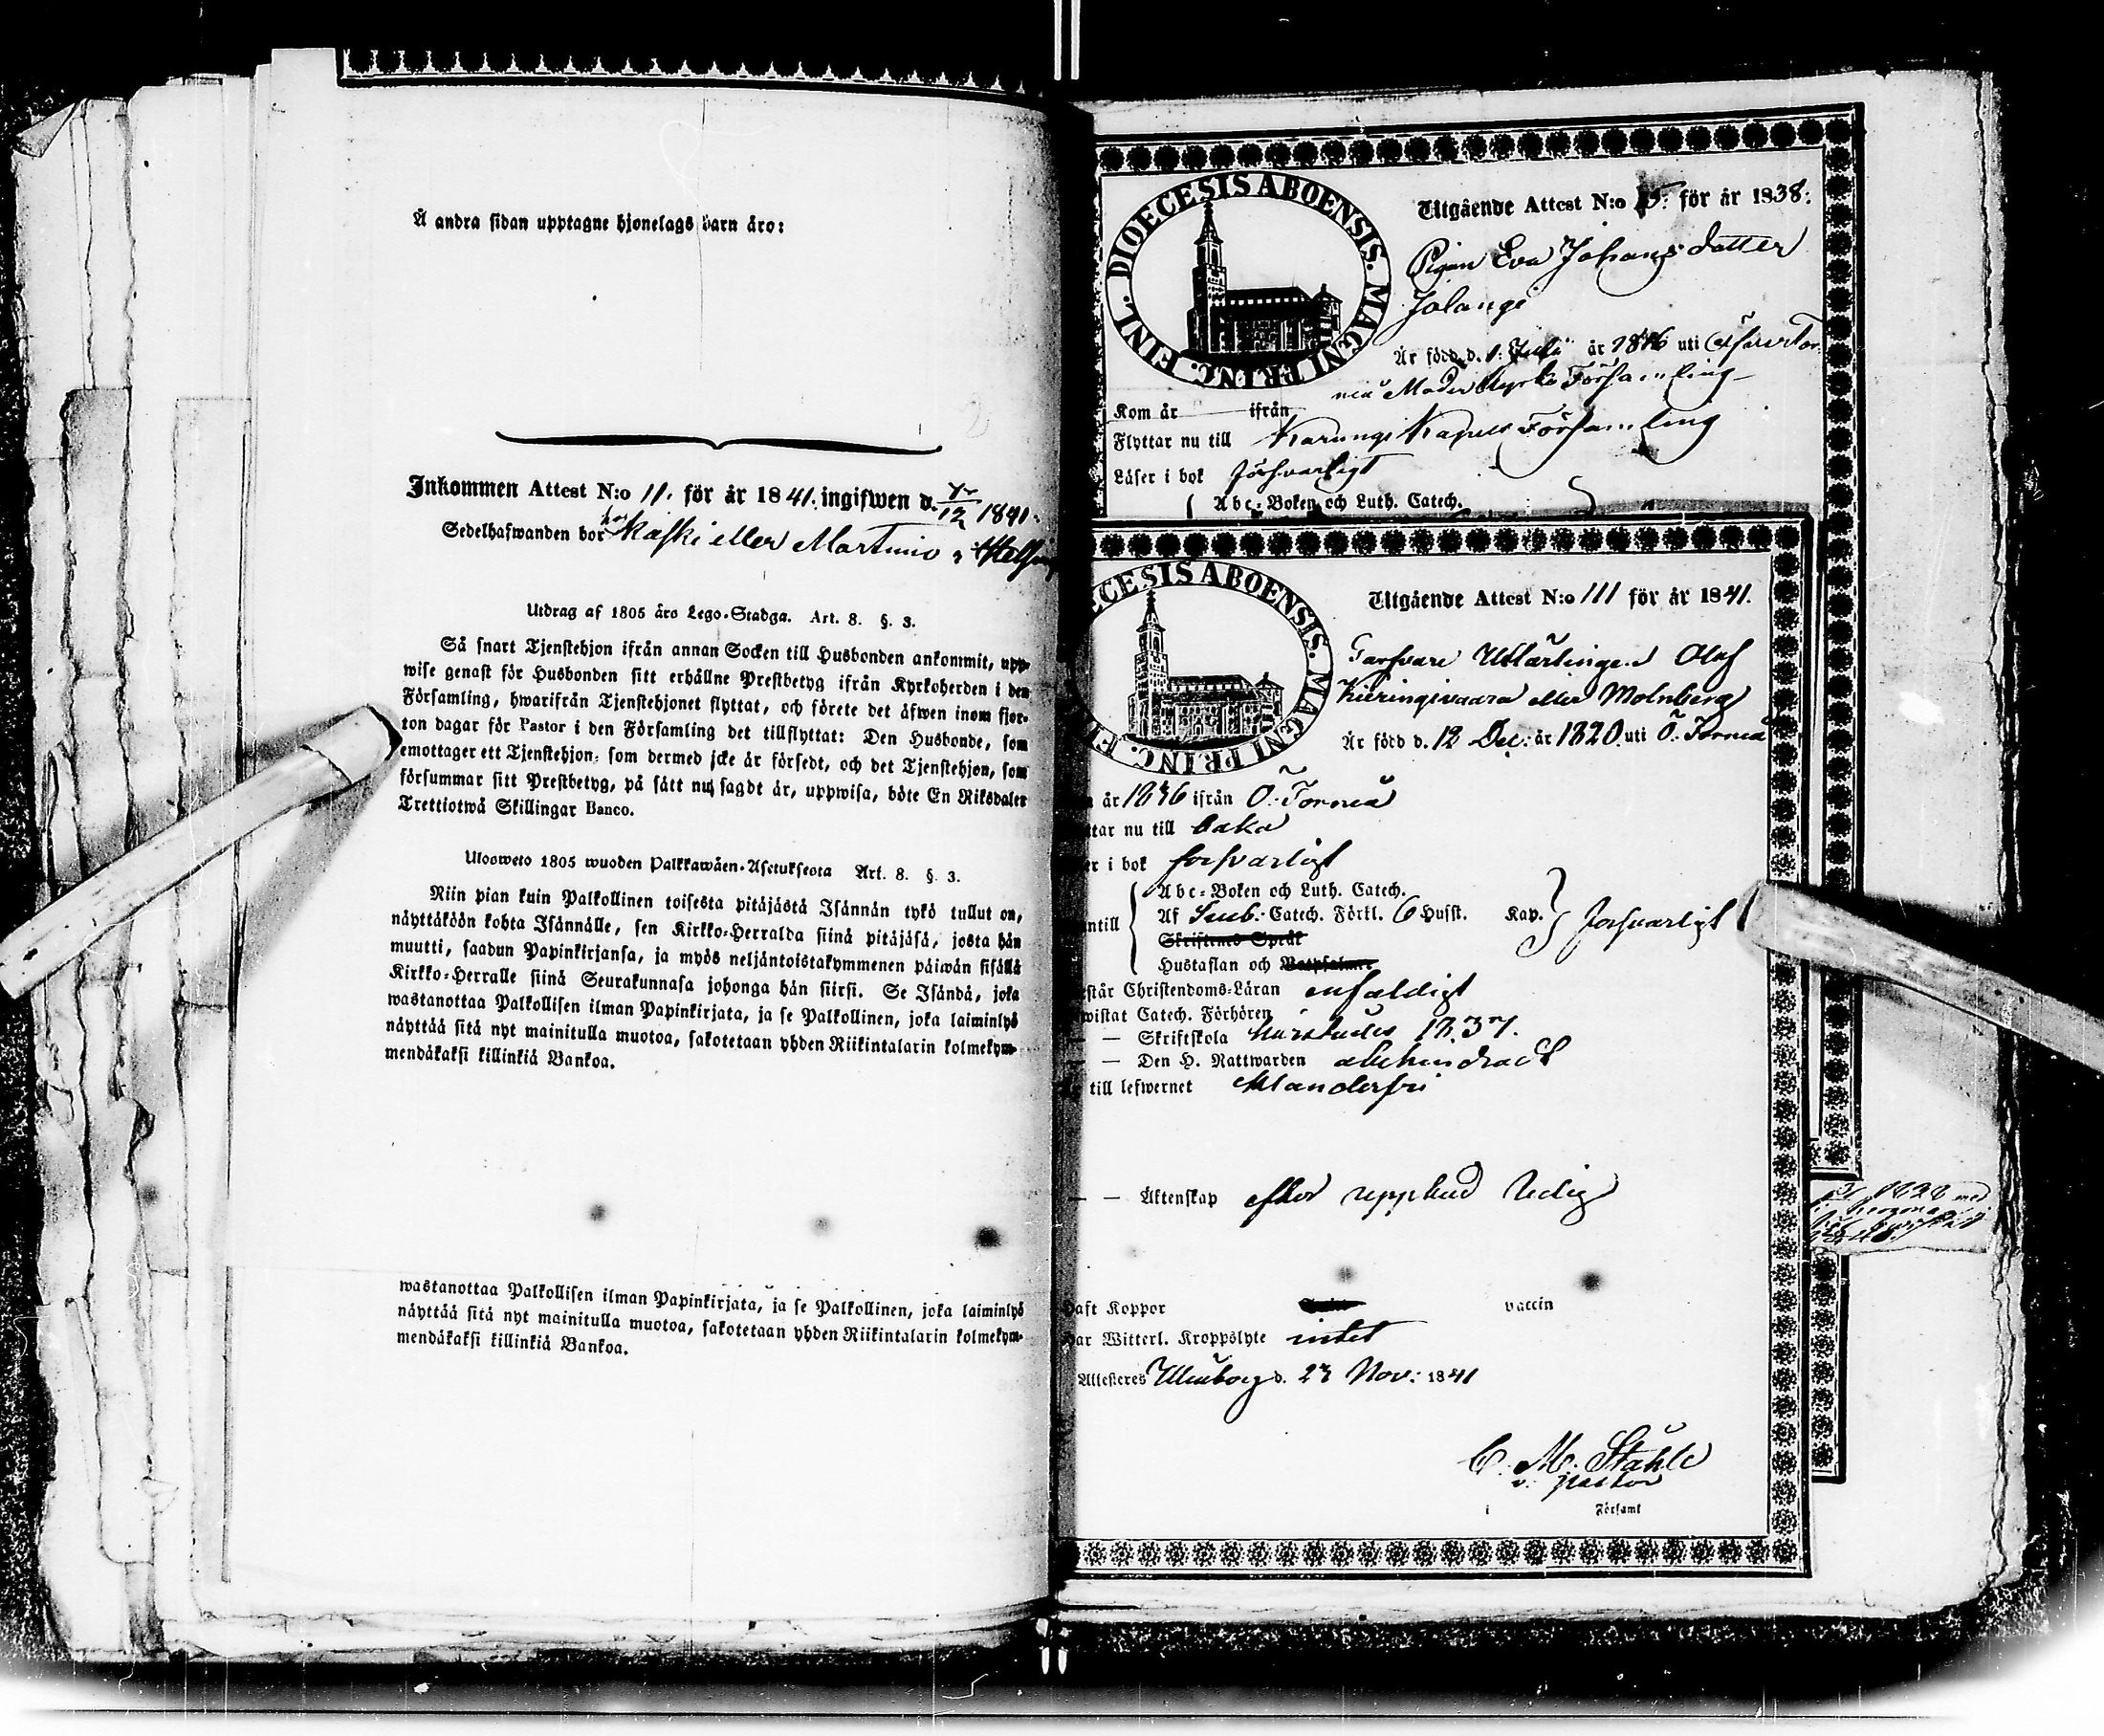 Å andra sidan upptagne hjonelags barn äro:
Inkommen Attest N:o 11. för år 1841. ingifwen d. 12 1841.
Sedelhafwanden bor hos Kaski eller Martimo i
Utdrag af 1805 års Lego-Stadga. Art. 8. §. 3.
Så snart Tjenstehjon ifrån annan Socken till Husbonden ankommit, upp-
wise genast för Husbonden sitt erhållne Prestbetyg ifrån Kyrkoherden i den
Församling, hwarifrån Tjenstehjonet flyttat, och förete det äfwen inom fjor-
ton dagar för Pastor i den Församling det tillflyttat: Den Husbonde, som
emottager ett Tjenstehjon, som dermed icke är försedt, och det Tjenstehjon, som
försummar sitt Prestbetyg, på sätt nu sagdt är, uppwisa, böte En Riksdaler
Trettiotwå Skillingar Banco.
Ulosweto 1805 wuoden Palkkawäen-Asetuksesta Art. 8. §. 3.
Niin pian kuin Palkollinen toisesta pitäjästä Isännän tykö tullut on,
näyttäköön kohta Isännälle, sen Kirkko-Herralda siinä pitäjäsä, josta hän
muutti, saadun Papinkirjansa, ja myös neljäntoistakymmenen päiwän sisällä
Kirkko-Herralle siinä Seurakunnasa johonga hän siirsi. Se Isändä, joka
wastanottaa Palkollisen ilman Papinkirjata, ja se Palkollinen, joka laiminlyö
näyttää sitä nyt mainitulla muotoa, sakotetaan yhden Riikintalarin kolmekym-
mendäkaksi killinkiä Bankoa.
wastanottaa Palkollisen ilman Papinkirjata, ja se Palkollinen, joka laiminlyö
näyttää sitä nyt mainitulla muotoa, sakotetaan yhden Riikintalarin kolmekym-
mendäkaksi killinkiä Bankoa.
DIOECESIS ABOENSIS. MAGNI PRINC. FINL.
Utgående Attest N:o för år 1838.
Pigan Eva Johansdotter
Jolangi
Är född d. 1. Julii år 1816 uti Öfver Tor-
neå Moder Kyrko Församling
Kom år ifrån
Flyttar nu till Karungi Kapels Församling
Läser i bok försvarligt
Abc-Boken och Luth. Catech.
CESIS ABOENSIS. MAGNI PRINC. FI
Utgående Attest N:o 111 för år 1841.
Garfvare Utlärlingen Olof
Kieringivaara eller Molnberg
Är född d. 12 Dec: år 1820. uti Ö. Torneå
år 1836 ifrån Ö. Torneå
ttar nu till baka
er i bok försvarligt
Abc-Boken och Luth. Catech.
ntill Af Catech. Förkl. 6 Hufst. Kap. försvarligt
Skriftenes Språk
Hustaflan och
står Christendoms-Läran enfaldigt
wistat Catech. Förhören
— Skriftskola 1837.
— Den H. Nattwarden
till lefwernet klanderfri
— — Äktenskap efter uppbud ledig
haft Koppor vaccin
har Witterl. Kroppslyte intet
Attesteres Uleåborg d. 23 Nov: 1841
C. M. Ståhle
v. pastor
i Församl